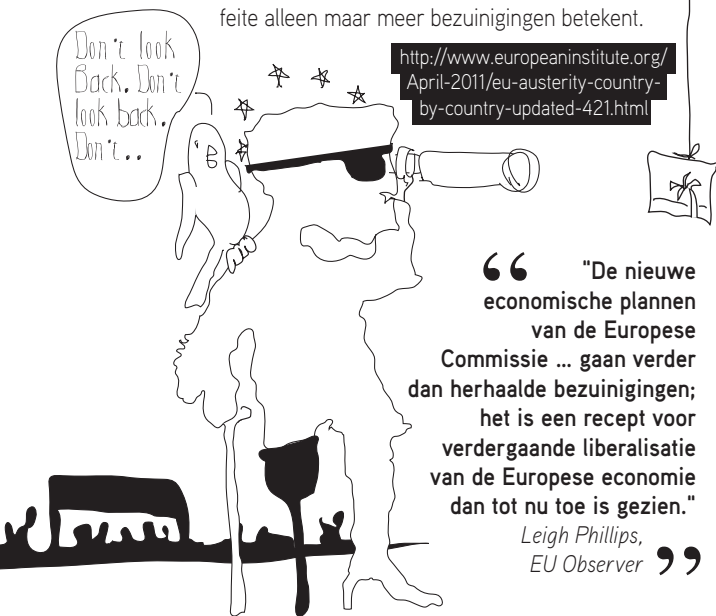 feite alleen maar meer bezuinigingen betekent.
Don't look
Back. Don't
look back.
Don't..
http://www.europeaninstitute.org/
April-2011/eu-austerity-country-
by-country-updated-421.html
“ "De nieuwe
economische plannen
van de Europese
Commissie ... gaan verder
dan herhaalde bezuinigingen;
het is een recept voor
verdergaande liberalisatie
van de Europese economie
dan tot nu toe is gezien."
Leigh Phillips,
EU Observer ”